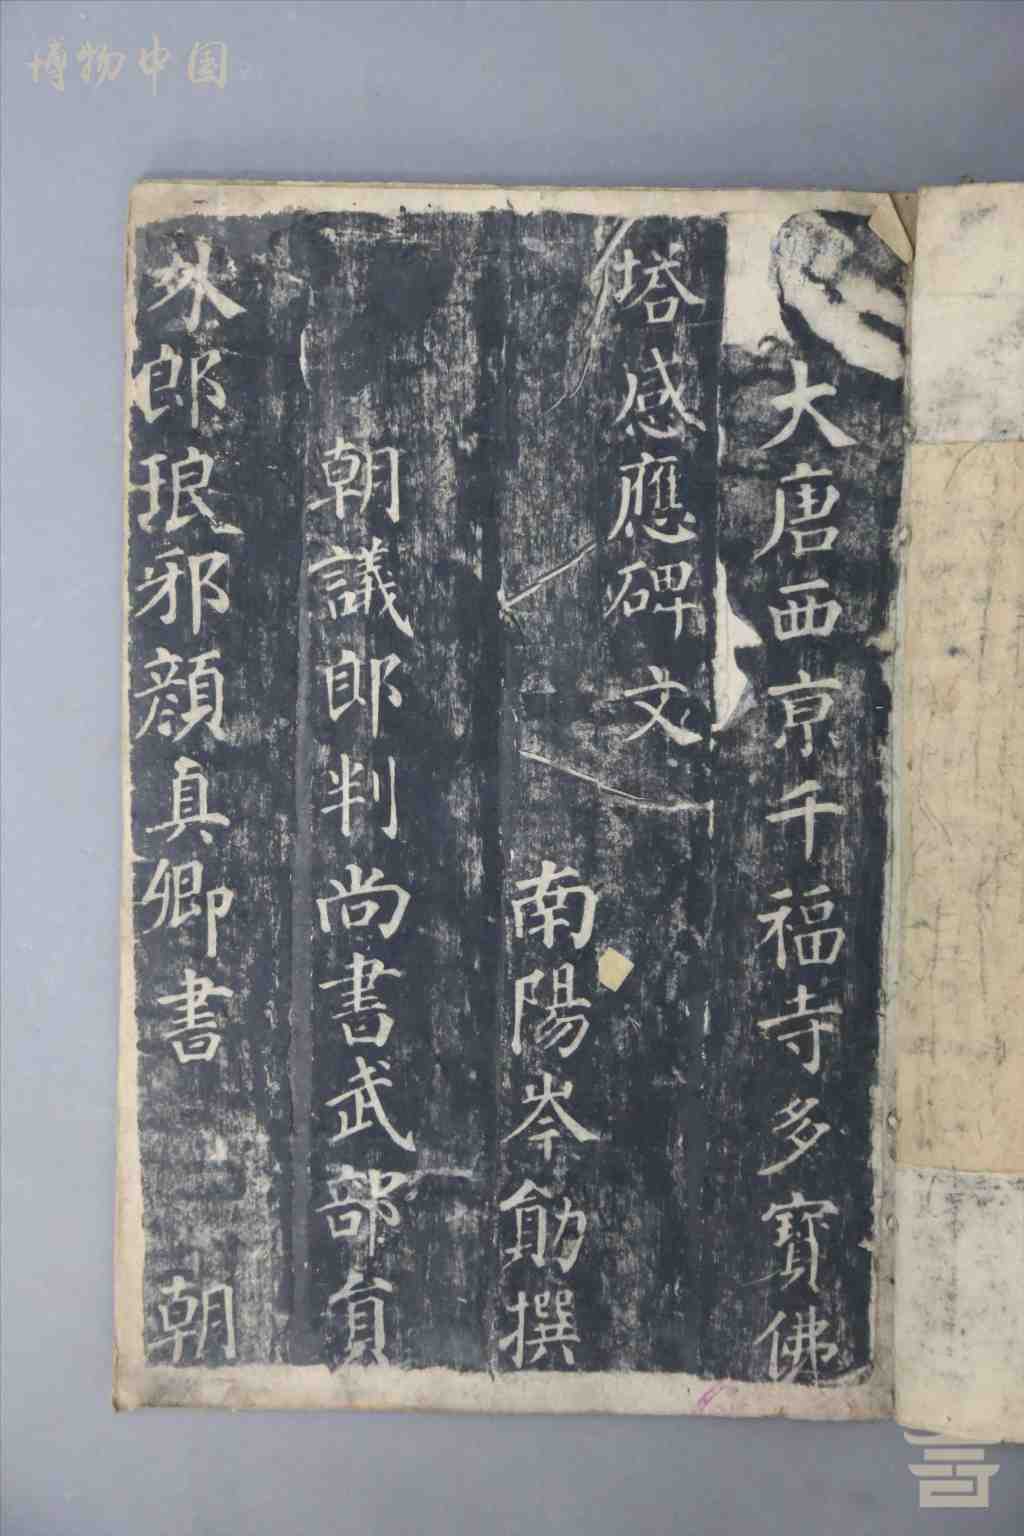 博物中国
大唐西京千福寺多寶佛
塔感應碑文
南陽岑勛撰
朝議郎判尚書武部員
外郎琅邪顏真卿書 朝